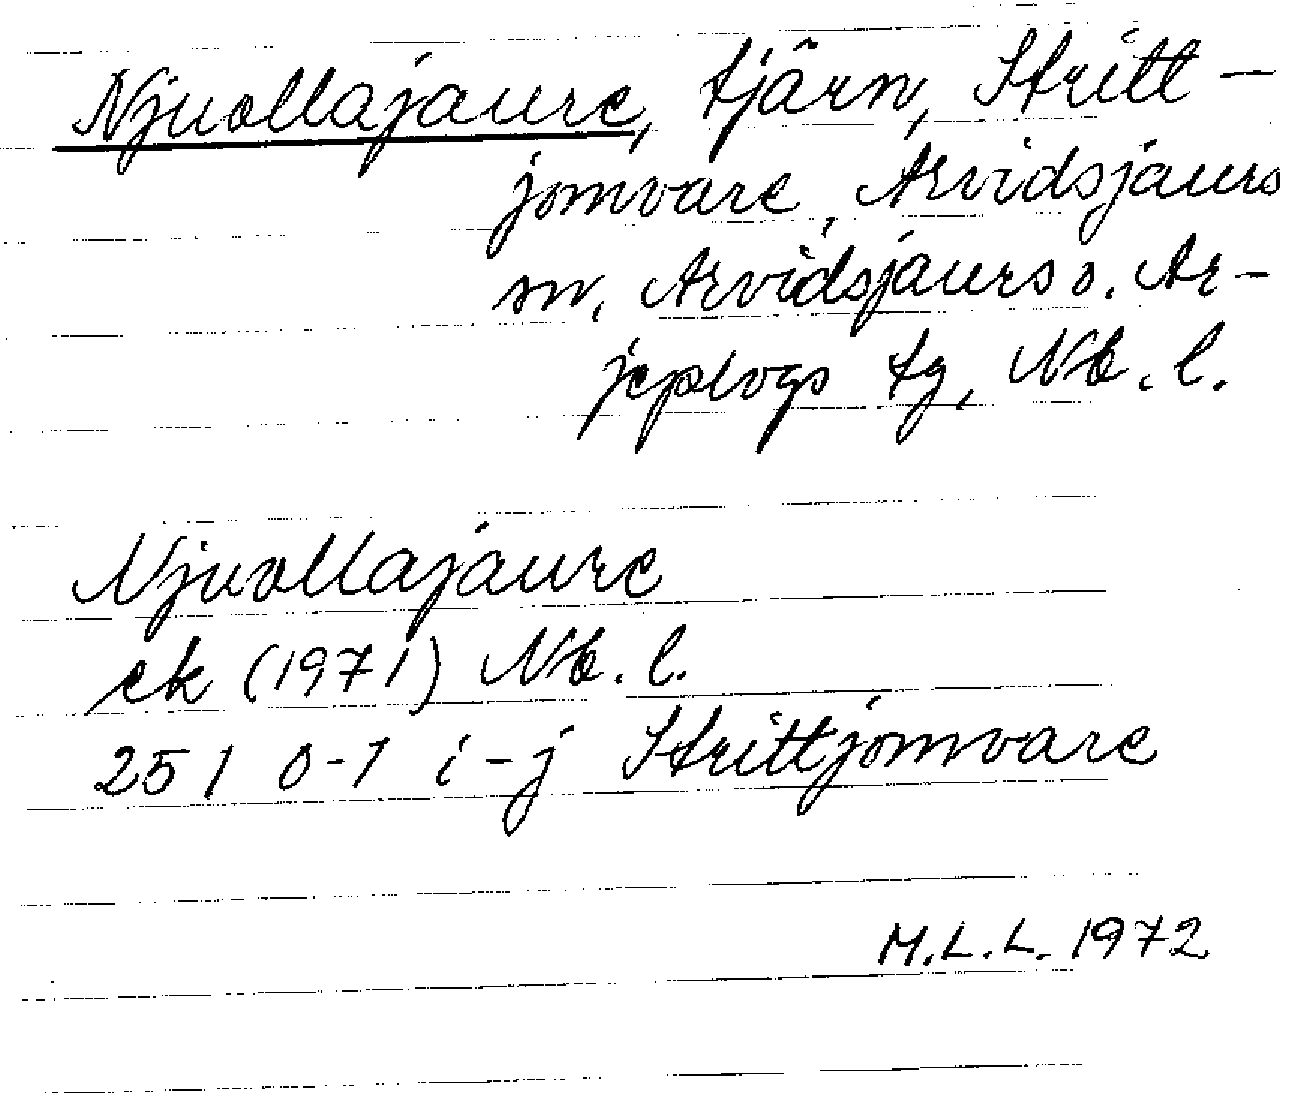 Njuollajaure, tjärn, Stritt-
jomvare, Arvidsjaurs
sn, Arvidsjaurs o. Ar-
jeplogs tg, Nb. l.
Njuollajaure
ek (1971) Nb. l.
25 I 0-1 i-j Strittjomvare
M.L.L. 1972